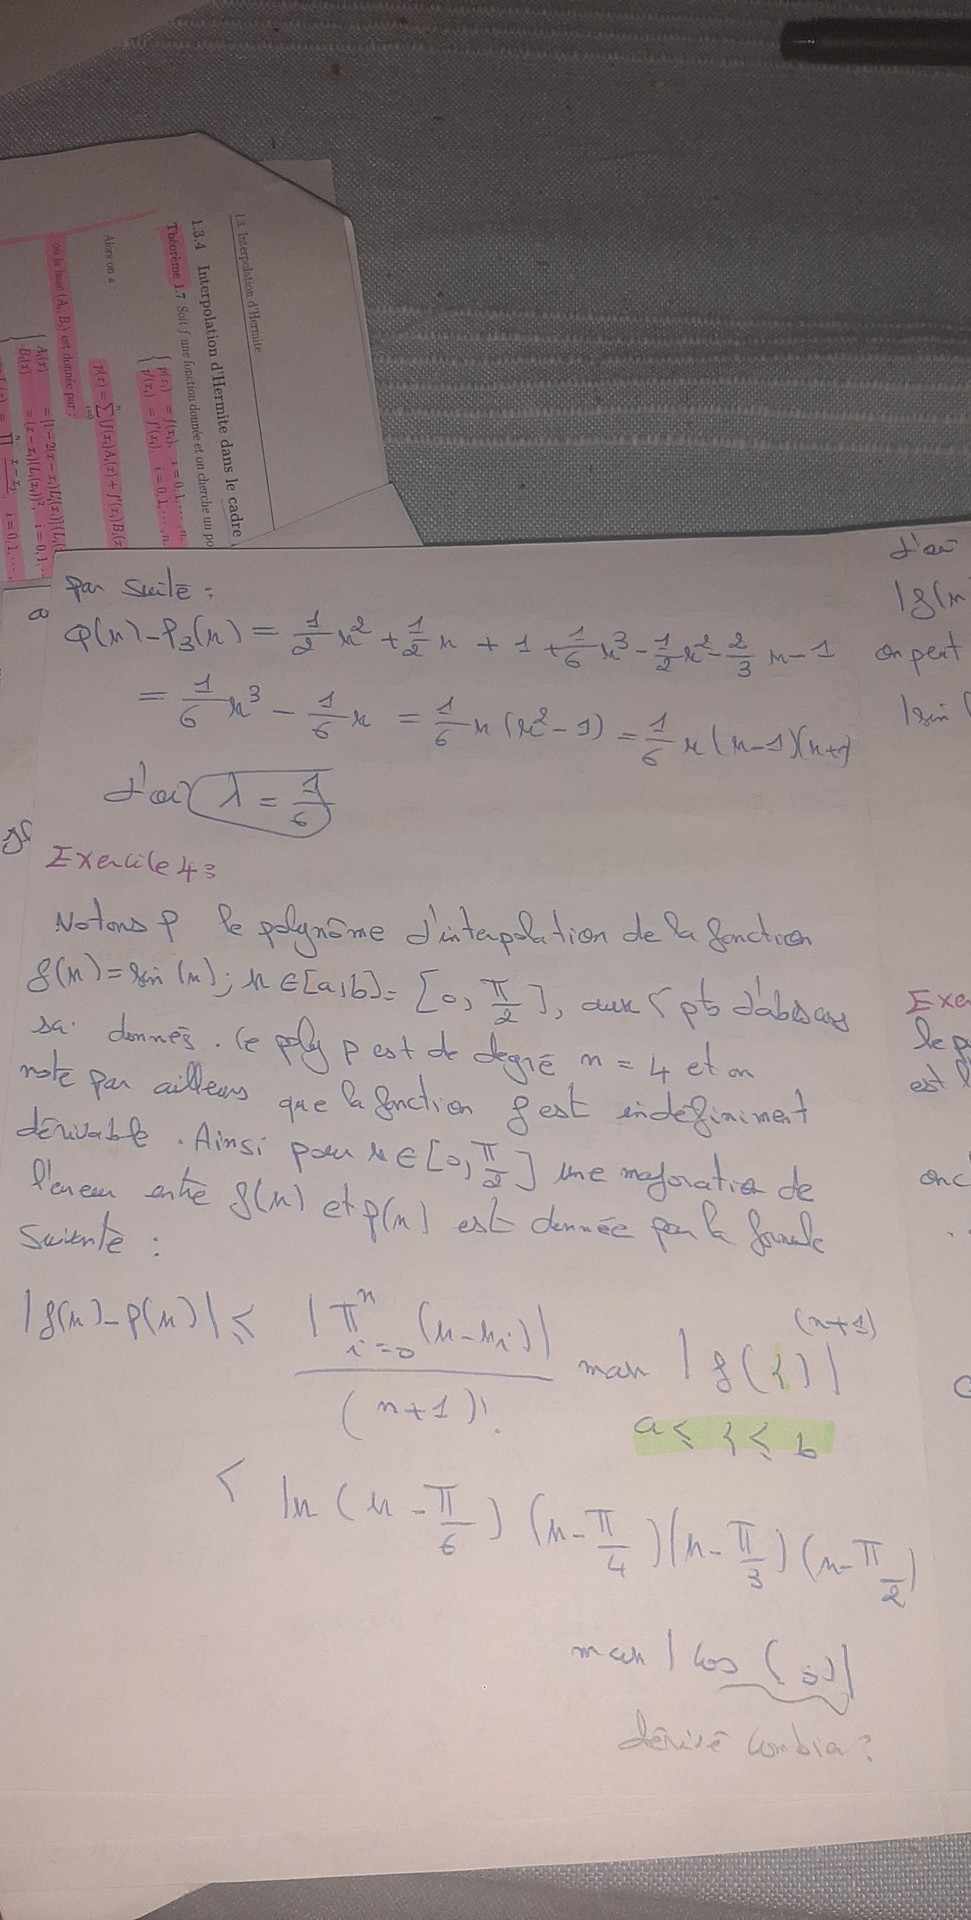 1.3 Interpolation d'Hermite
1.3.4 Interpolation d'Hermite dans le cadre
Théorème 1.7 Soit f une fonction donnée et on cherche un po
p(xᵢ) = f(xᵢ), i = 0, 1, ..., n,
p'(xᵢ) = f'(xᵢ), i = 0, 1, ..., n.
Alors on a
p(x) = Σ (f(xᵢ)Aᵢ(x) + f'(xᵢ)Bᵢ(x
où la base (Aᵢ, Bᵢ) est donnée par :
Aᵢ(x) = [1 − 2(x − xᵢ)
Bᵢ(x) = (x − xᵢ)(Lᵢ(x))², i = 0, 1
par suite :
Q(x) − P₃(x) = 1/2 x² + 1/2 x + 1 + 1/6 x³ − 1/2 x² − 2/3 x − 1
= 1/6 x³ − 1/6 x = 1/6 x (x² − 1) = 1/6 x (x − 1)(x+1)
d'où λ = 1/6
Exercice 4 :
Notons P le polynôme d'interpolation de la fonction
f(x) = sin(x); x ∈ [a,b] = [0, π/2], aux 5 pts d'abscis
sa donnés. Ce poly p est de degré n = 4 et on
note par ailleurs que la fonction f est indéfiniment
dérivable. Ainsi pour x ∈ [0, π/2] une majoration de
l'erreur entre f(x) et p(x) est donnée par la formule
suivante :
|f(x) − p(x)| ≤ |π ⁿ i=0 (x − xᵢ)| / (n+1)! max |f(ξ)| (n+1)
a ≤ ξ ≤ b
< |x (x − π/6) (x − π/4)(x − π/3)(x − π/2)
max | cos ( )|
dérivé combia ?
d'où
on peut
|sin (
Exe
le p
est